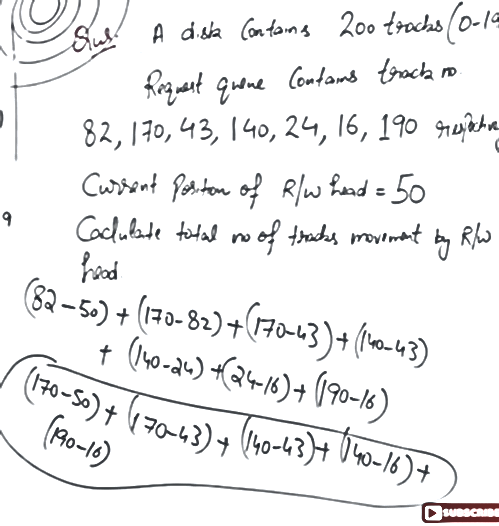 Que. A disk Contains 200 tracks (0-19
Request queue Contains track no
82, 170, 43, 140, 24, 16, 190 respective
Current Position of R/w head = 50
Caclulate total no of tracks movement by R/w
head
(82-50) + (170-82) + (170-43) + (140-43)
+ (140-24) + (24-16) + (190-16)
(170-50) + (170-43) + (140-43) + (140-16) +
(190-16)
9
SUBSCRIBE